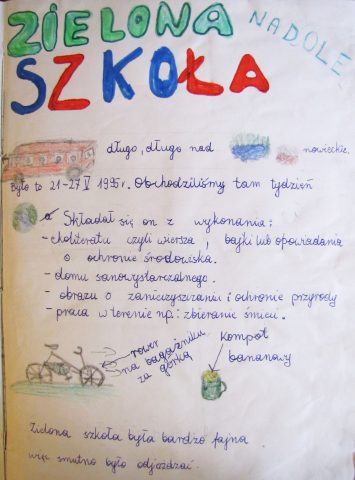 ZIELONA
NADOLE
SZKOŁA
długo, długo nad nowieckie.
Było to 21-27 V 1995r. Obchodziliśmy tam tydzień
Składał się on z wykonania:
- choliteratu czyli wiersza, bajki lub opowiadania
o ochronie środowiska.
- domu samowystarczalnego.
- obrazu o zanieczyszczaniu i ochronie przyrody
- praca w terenie np: zbieranie śmieci.
rower
na bagażniku
za górką
kompot
bananowy
Zielona szkoła była bardzo fajna
więc smutno było odjeżdżać.